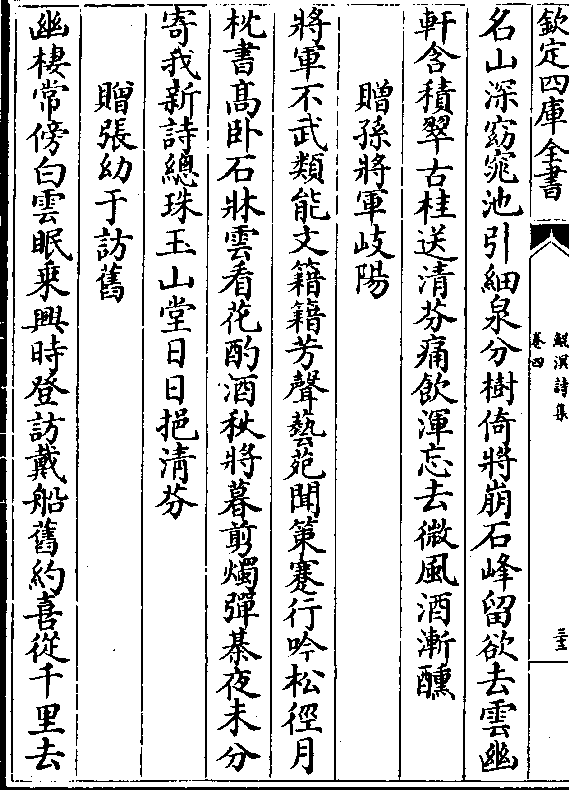 欽定四庫全書
鯤溟詩集
卷四
名山深窈窕池引細泉分樹倚將崩石峰留欲去雲幽
軒含積翠古桂送清芬痛飲渾忘去微風酒漸醺
贈孫將軍岐陽
將軍不武類能文籍籍芳聲藝苑聞策蹇行吟松徑月
枕書髙卧石牀雲看花酌酒秋將暮剪燭彈棊夜未分
寄我新詩總珠玉山堂日日挹清芬
贈張幼于訪舊
幽棲常傍白雲眠乗興時登訪戴船舊約喜從千里去